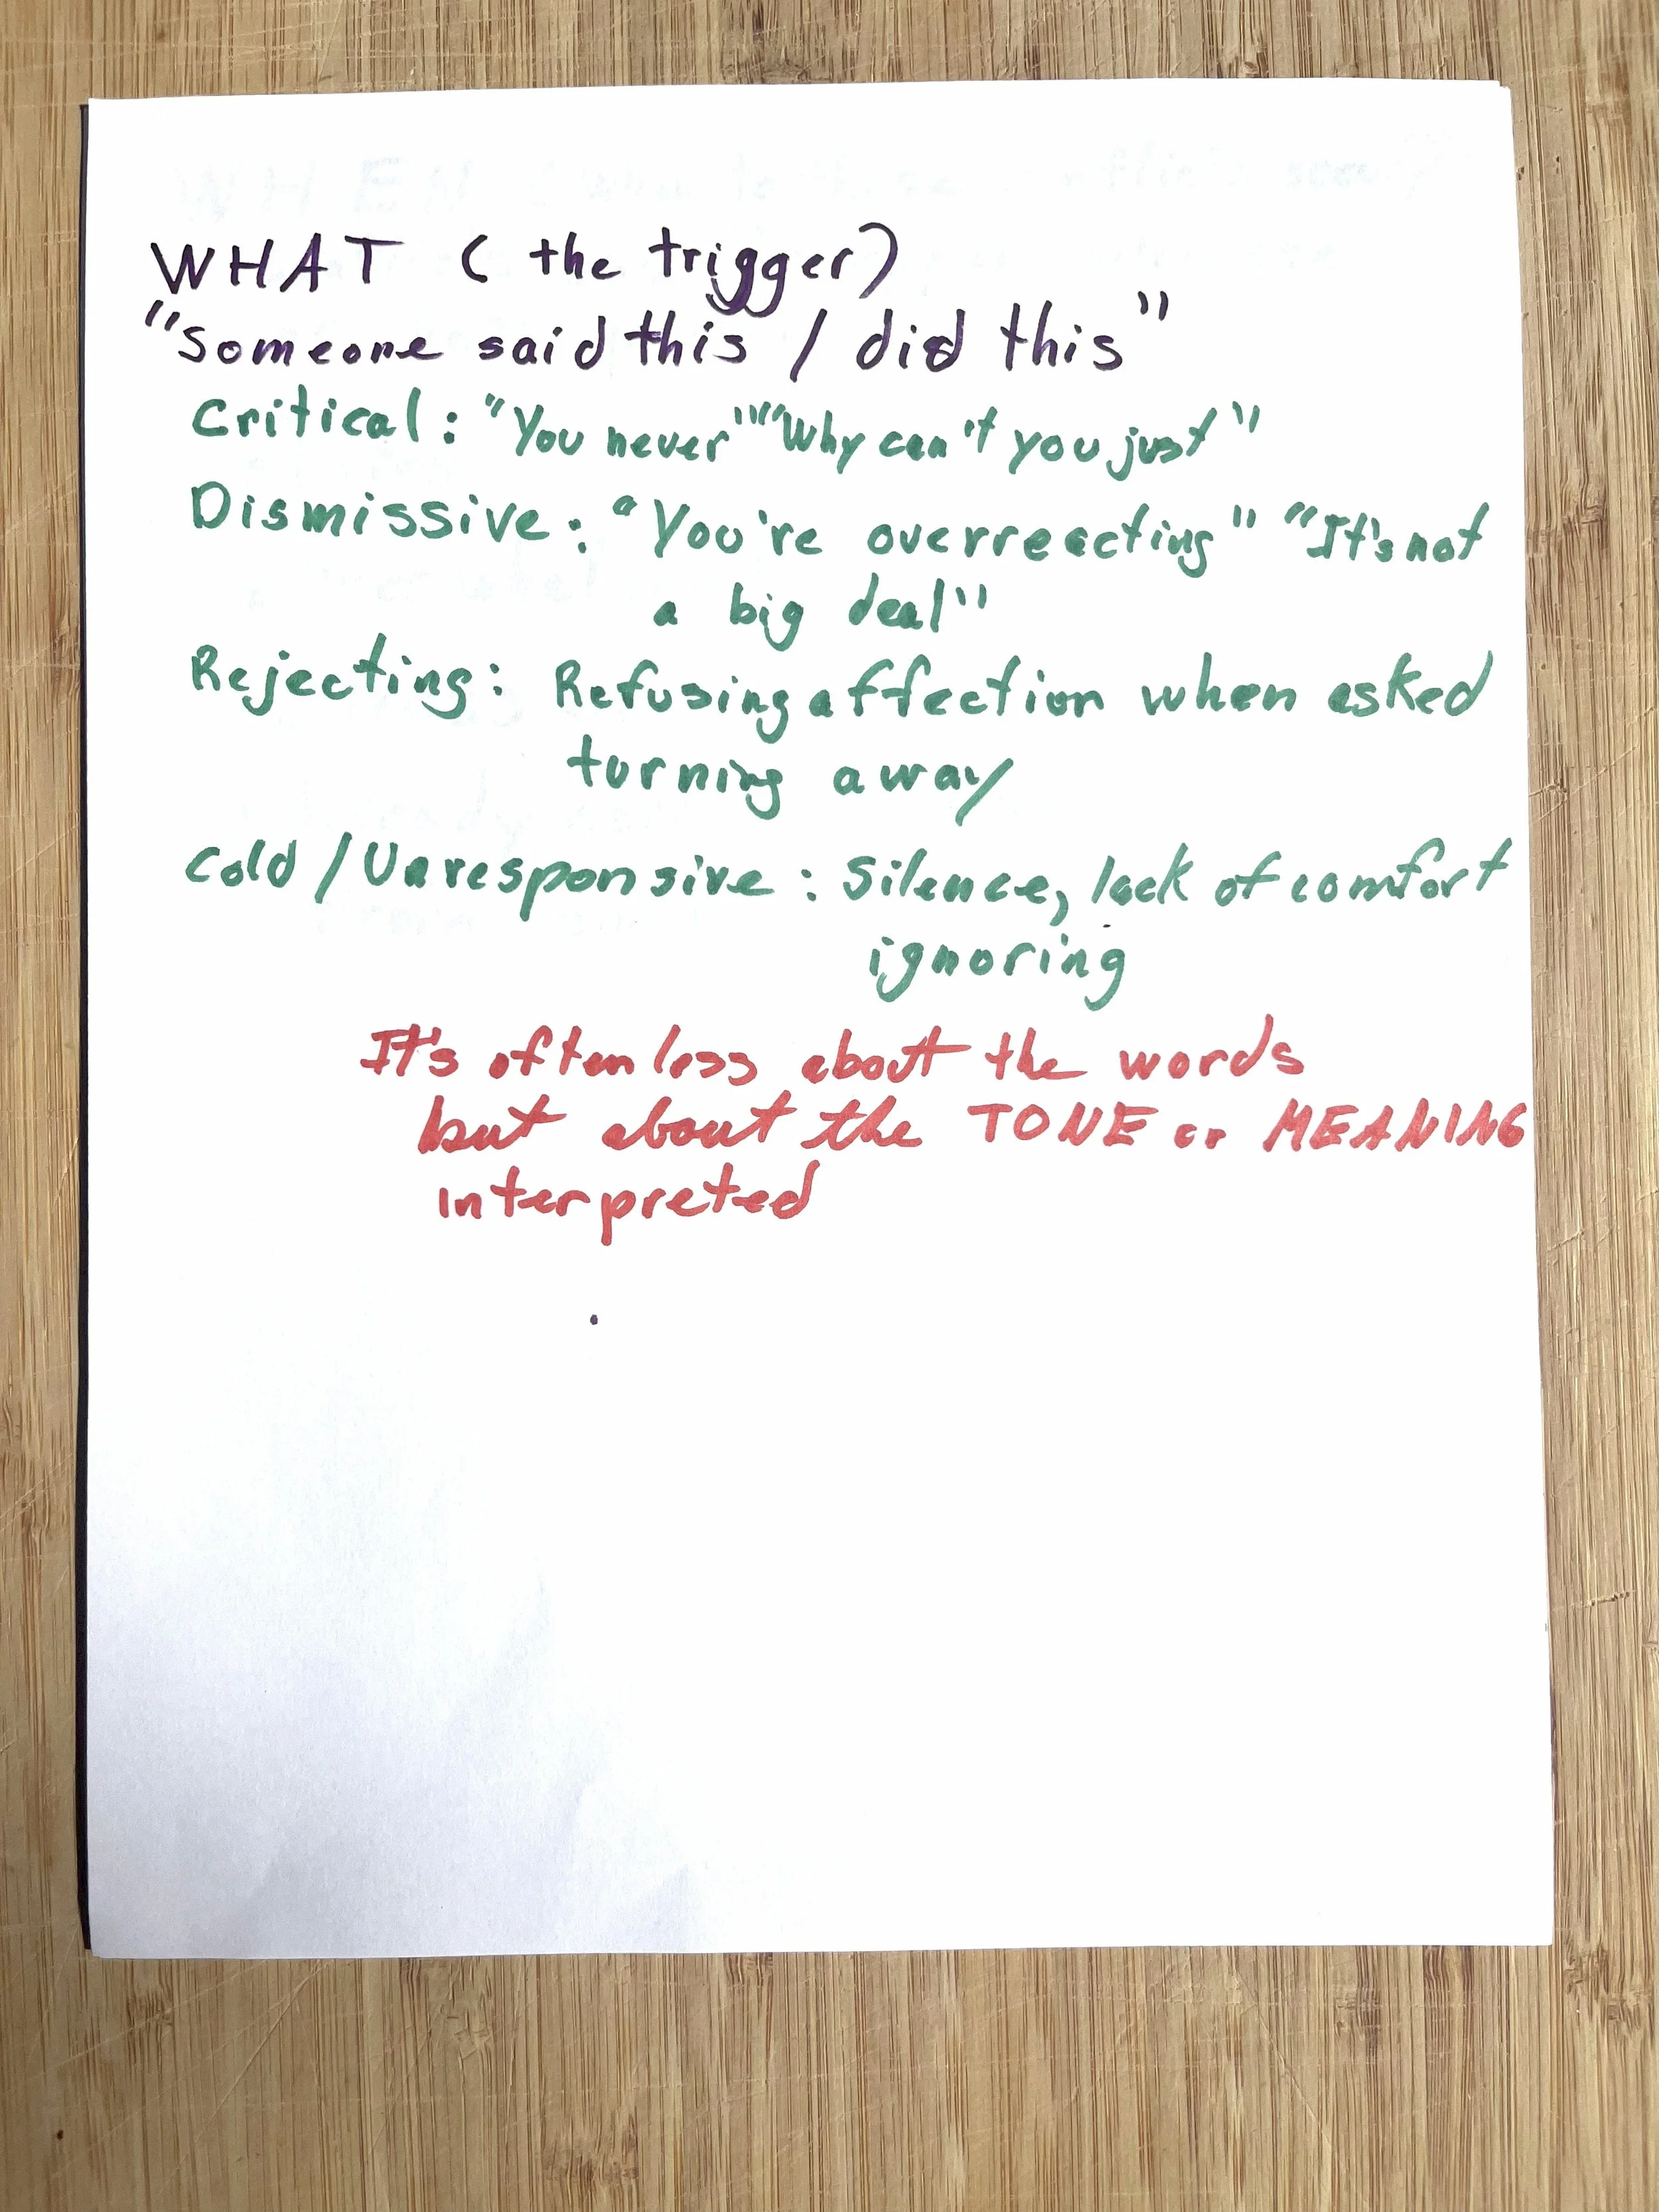 WHAT (the trigger)
"Someone said this / did this"
Critical: "You never" "Why can't you just"
Dismissive: "You're overreacting" "It's not
a big deal"
Rejecting: Refusing affection when asked
turning away
Cold / Unresponsive: Silence, lack of comfort
ignoring
It's often less about the words
but about the TONE or MEANING
interpreted